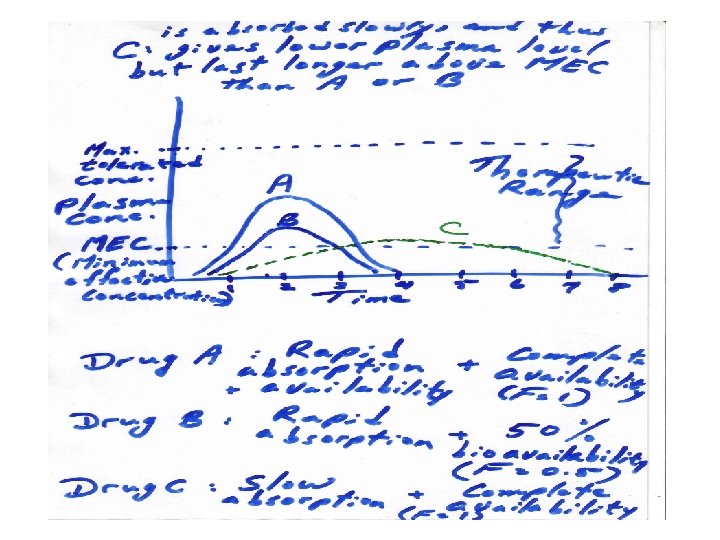 is absorbed slowly, and thus
C: gives lower plasma level
but last longer above MEC
than A or B
Max.
tolerated
conc.
Plasma
conc.
MEC
(Minimum
effective
concentration)
A
B
C
Therapeutic
Range
1 2 3 4 5 6 7 8
Time
Drug A : Rapid
absorption + Complete
+ availability availability
(F=1)
Drug B : Rapid
absorption + 50%
bioavailability
(F=0.5)
Drug C : Slow
absorption + Complete
(F=1) availability